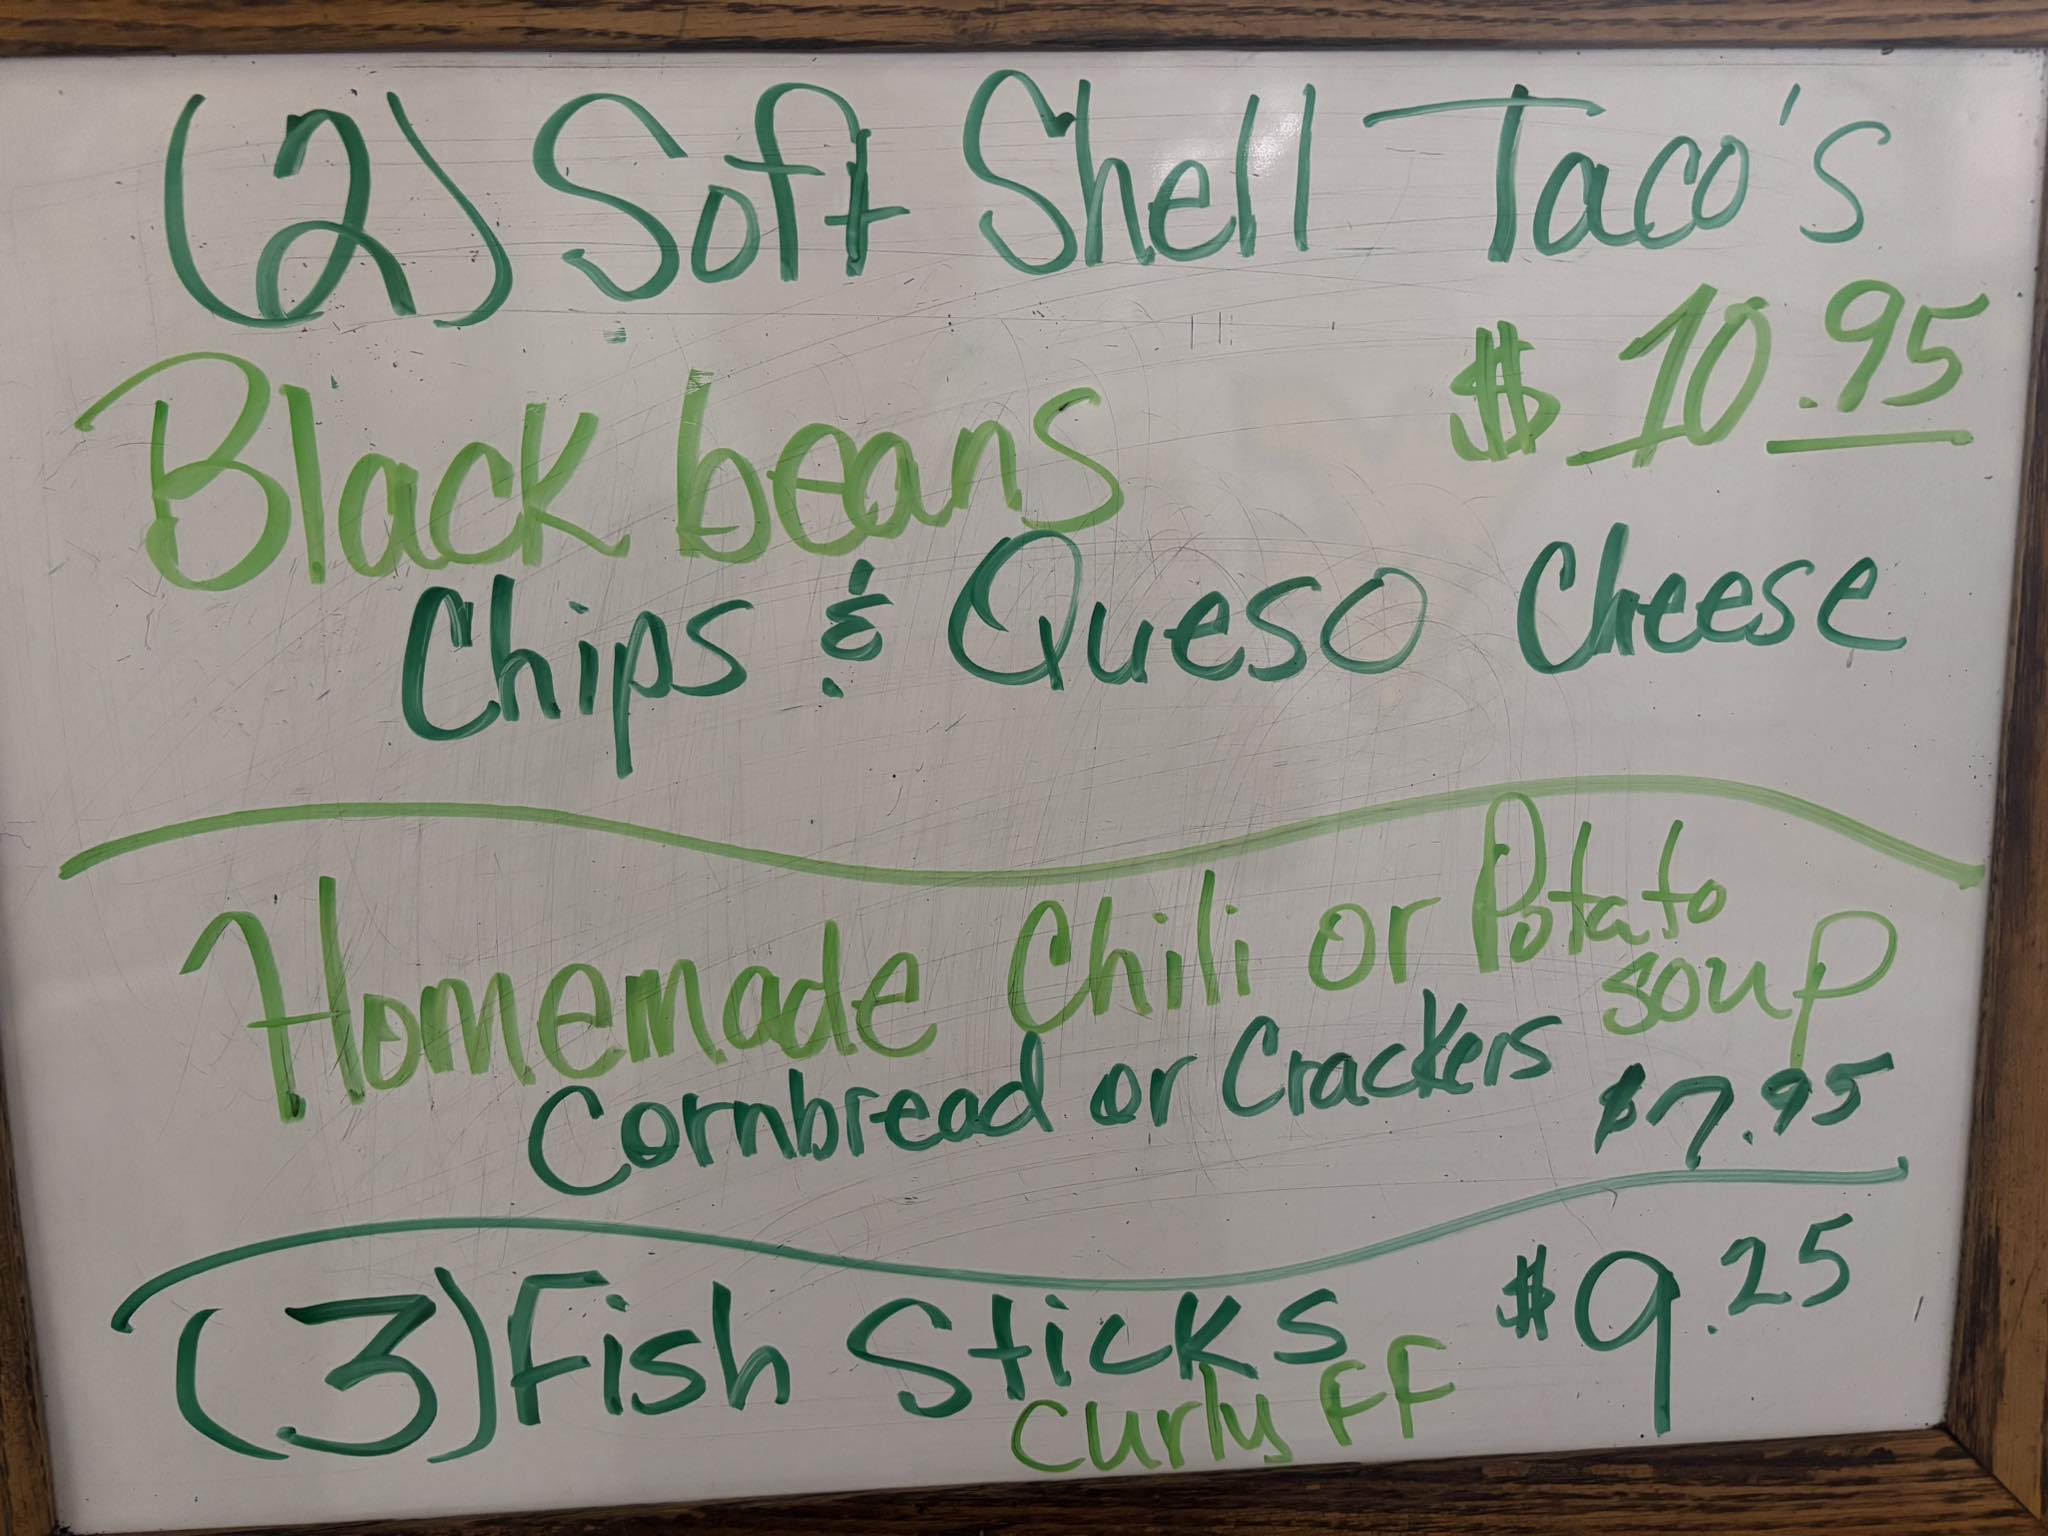 (2) Soft Shell Taco's
$10.95
Black beans
Chips & Queso Cheese
Homemade Chili or Potato
soup
Cornbread or Crackers
$7.95
(3) Fish Sticks
$9.25
Curly FF